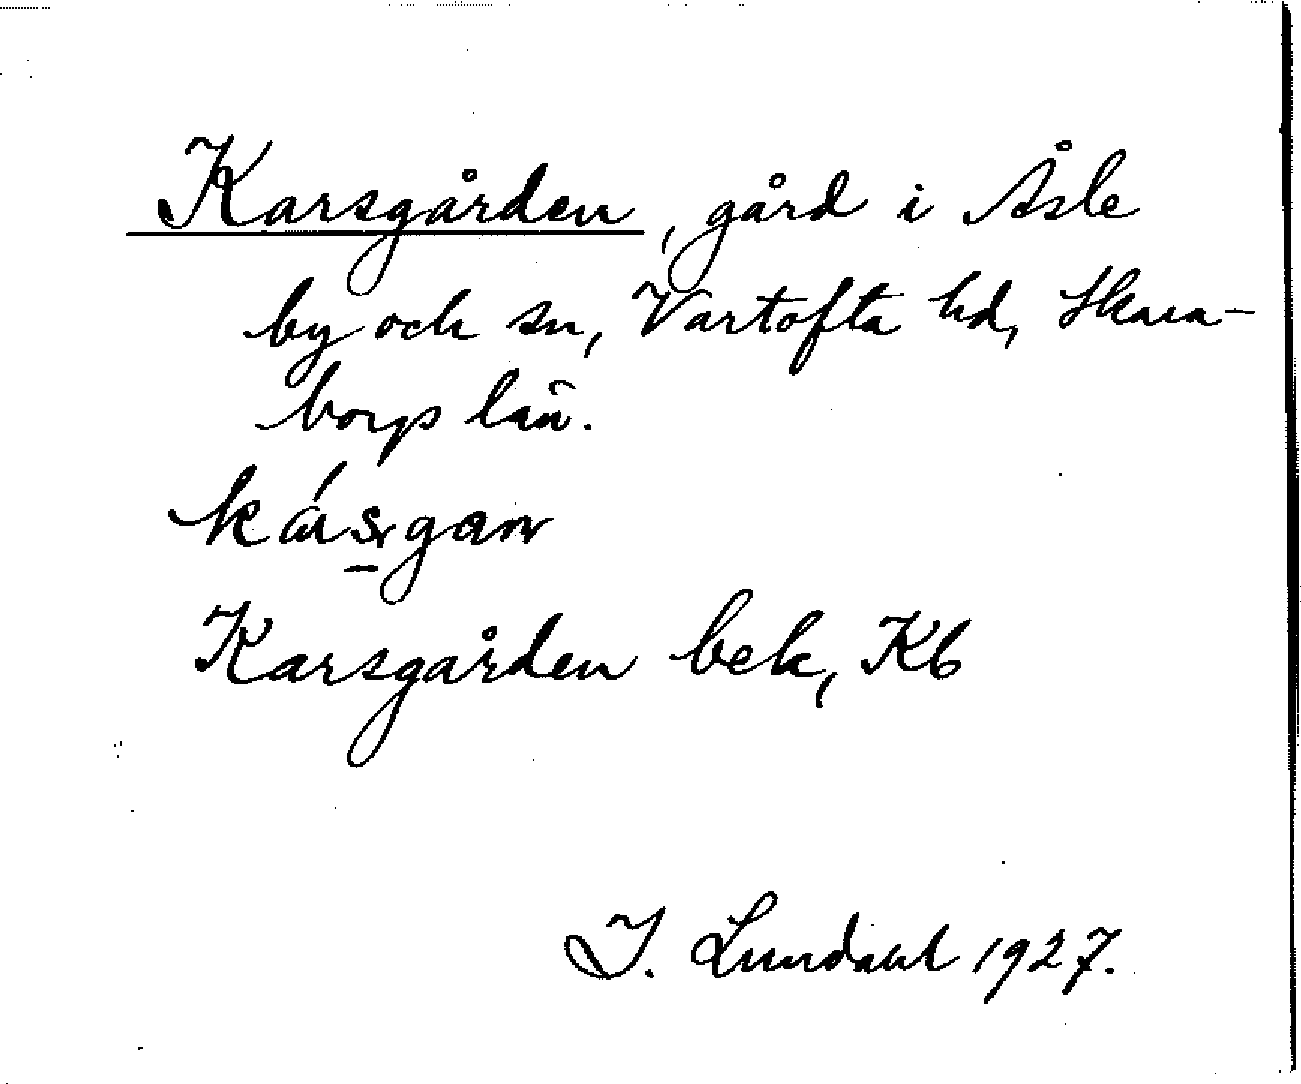 Karsgården, gård i Åsle
by och sn, Vartofta hd, Skara-
borgs län.
Karsgården bek, Kb
I. Lundahl 1927.